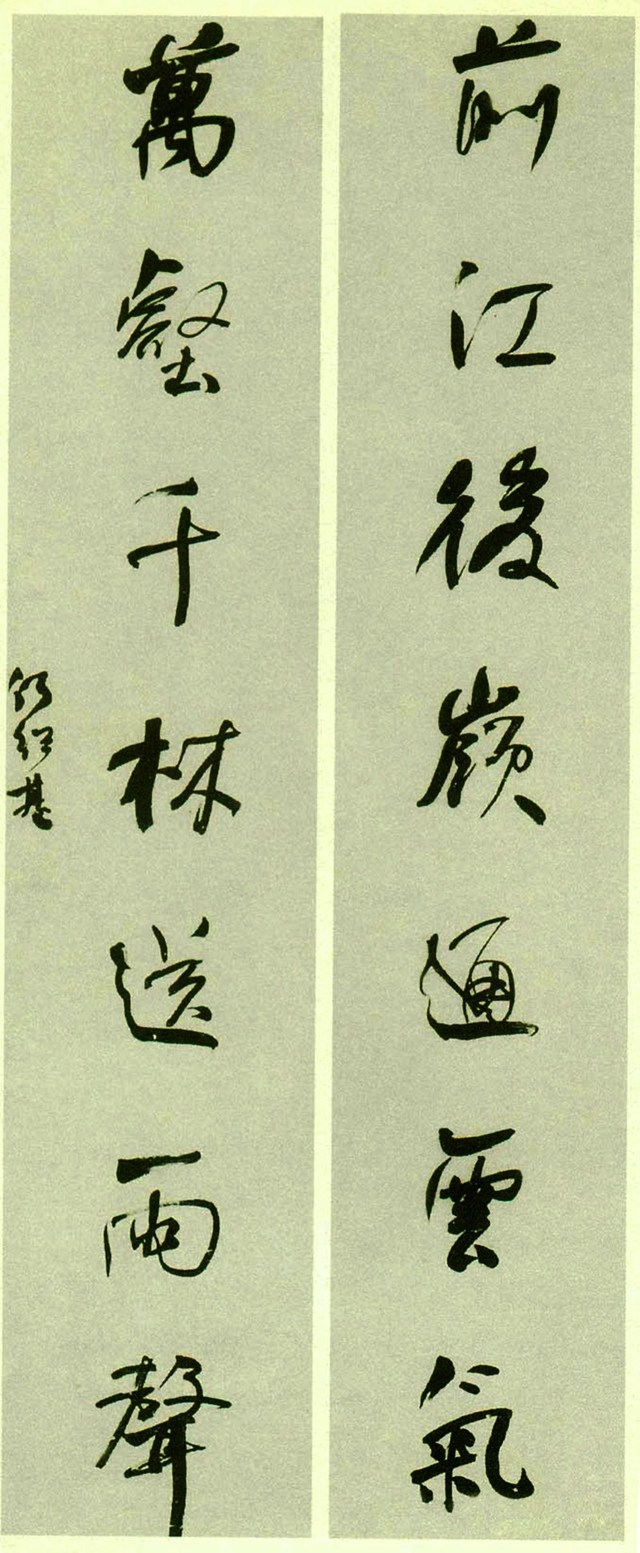 前江後嶺通雲氣
萬壑千林送雨聲
何紹基